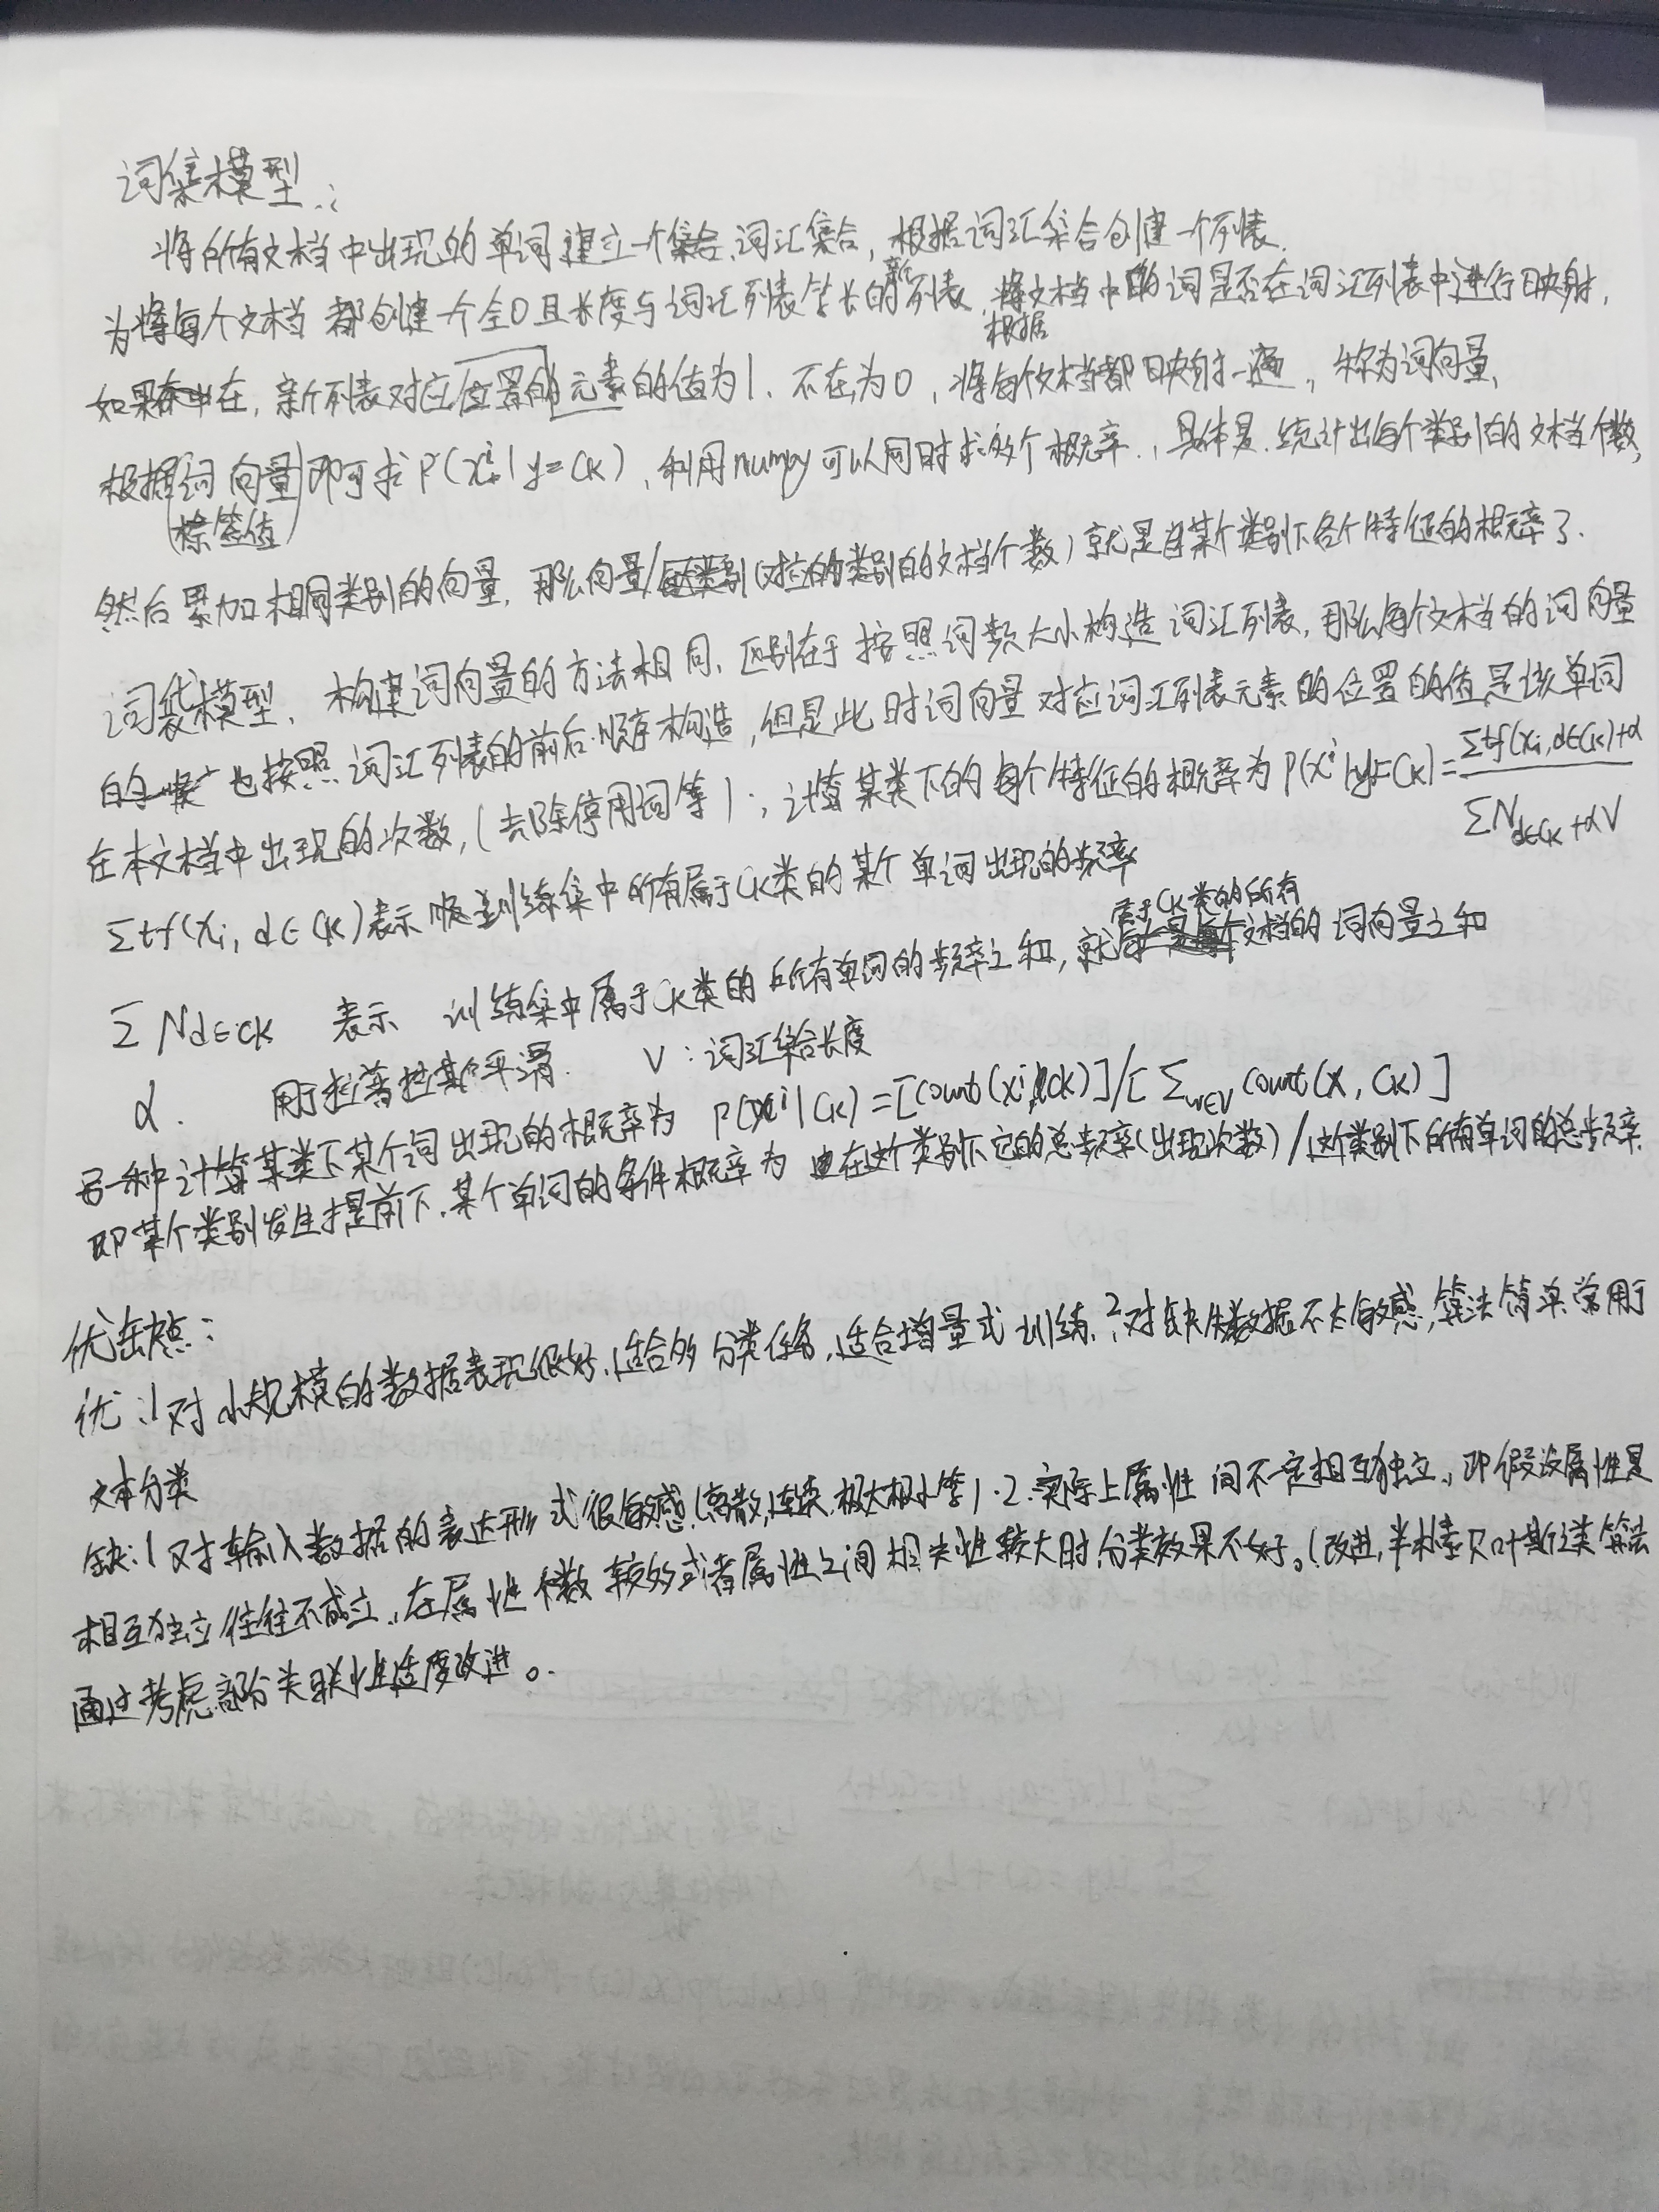 词集模型:
将所有文档中出现的单词建立一个词汇集合,根据词汇集合创建一个列表.
为每个文档都创建一个全0且长度与词汇列表等长的新列表,根据文档中的词是否在词汇列表中进行映射,
如果在,新列表对应位置的元素的值为1、不在为0,将每个文档都映射一遍,称为词向量,
根据词向量(标签值)即可求P(xⁱ|y=Ck),利用numpy可以同时求多个概率.,具体是.统计出每个类别的文档个数,
然后累加相同类别的向量,那么向量/每类别(对应的类别的文档个数)就是某个类别下各个特征的概率了.
词袋模型、构建词向量的方法相同、区别在于按照词频大小构造词汇列表,那么每个文档的词向量
的也按照词汇列表的前后顺序构造,但是此时词向量对应词汇列表元素的位置的值是该单词
在本文档中出现的次数,(去除停用词等);计算某类下的每个特征的概率为P(xⁱ|y=Ck)=Σtf(xi,d∈Ck)+α / ΣNd∈Ck+αV
Σtf(xi,d∈Ck)表示训练集中所有属于Ck类的某个单词出现的频率
ΣNd∈Ck 表示 训练集中属于Ck类的所有单词的频率之和,就是属于Ck类的所有文档的词向量之和
α. 用于拉普拉斯平滑. V:词汇集合长度
另一种计算某类下某个词出现的概率为 P(xⁱ|Ck)=[count(xⁱ,Ck)]/[Σw∈V count(x,Ck)]
即某个类别发生提前下.某个单词的条件概率为在这个类别下它的总频率(出现次数)/这个类别下所有单词的总频率.
优缺点:
优:1对小规模的数据表现很好,适合多分类任务,适合增量式训练.2对缺失数据不太敏感,算法简单常用于
文本分类
缺:1对输入数据的表达形式很敏感(离散,连续,极大极小等)·2.实际上属性间不一定相互独立.,即假设属性是
相互独立往往不成立.,在属性个数较多或者属性之间相关性较大时,分类效果不好。(改进,半朴素贝叶斯类算法
通过考虑部分关联性适度改进。